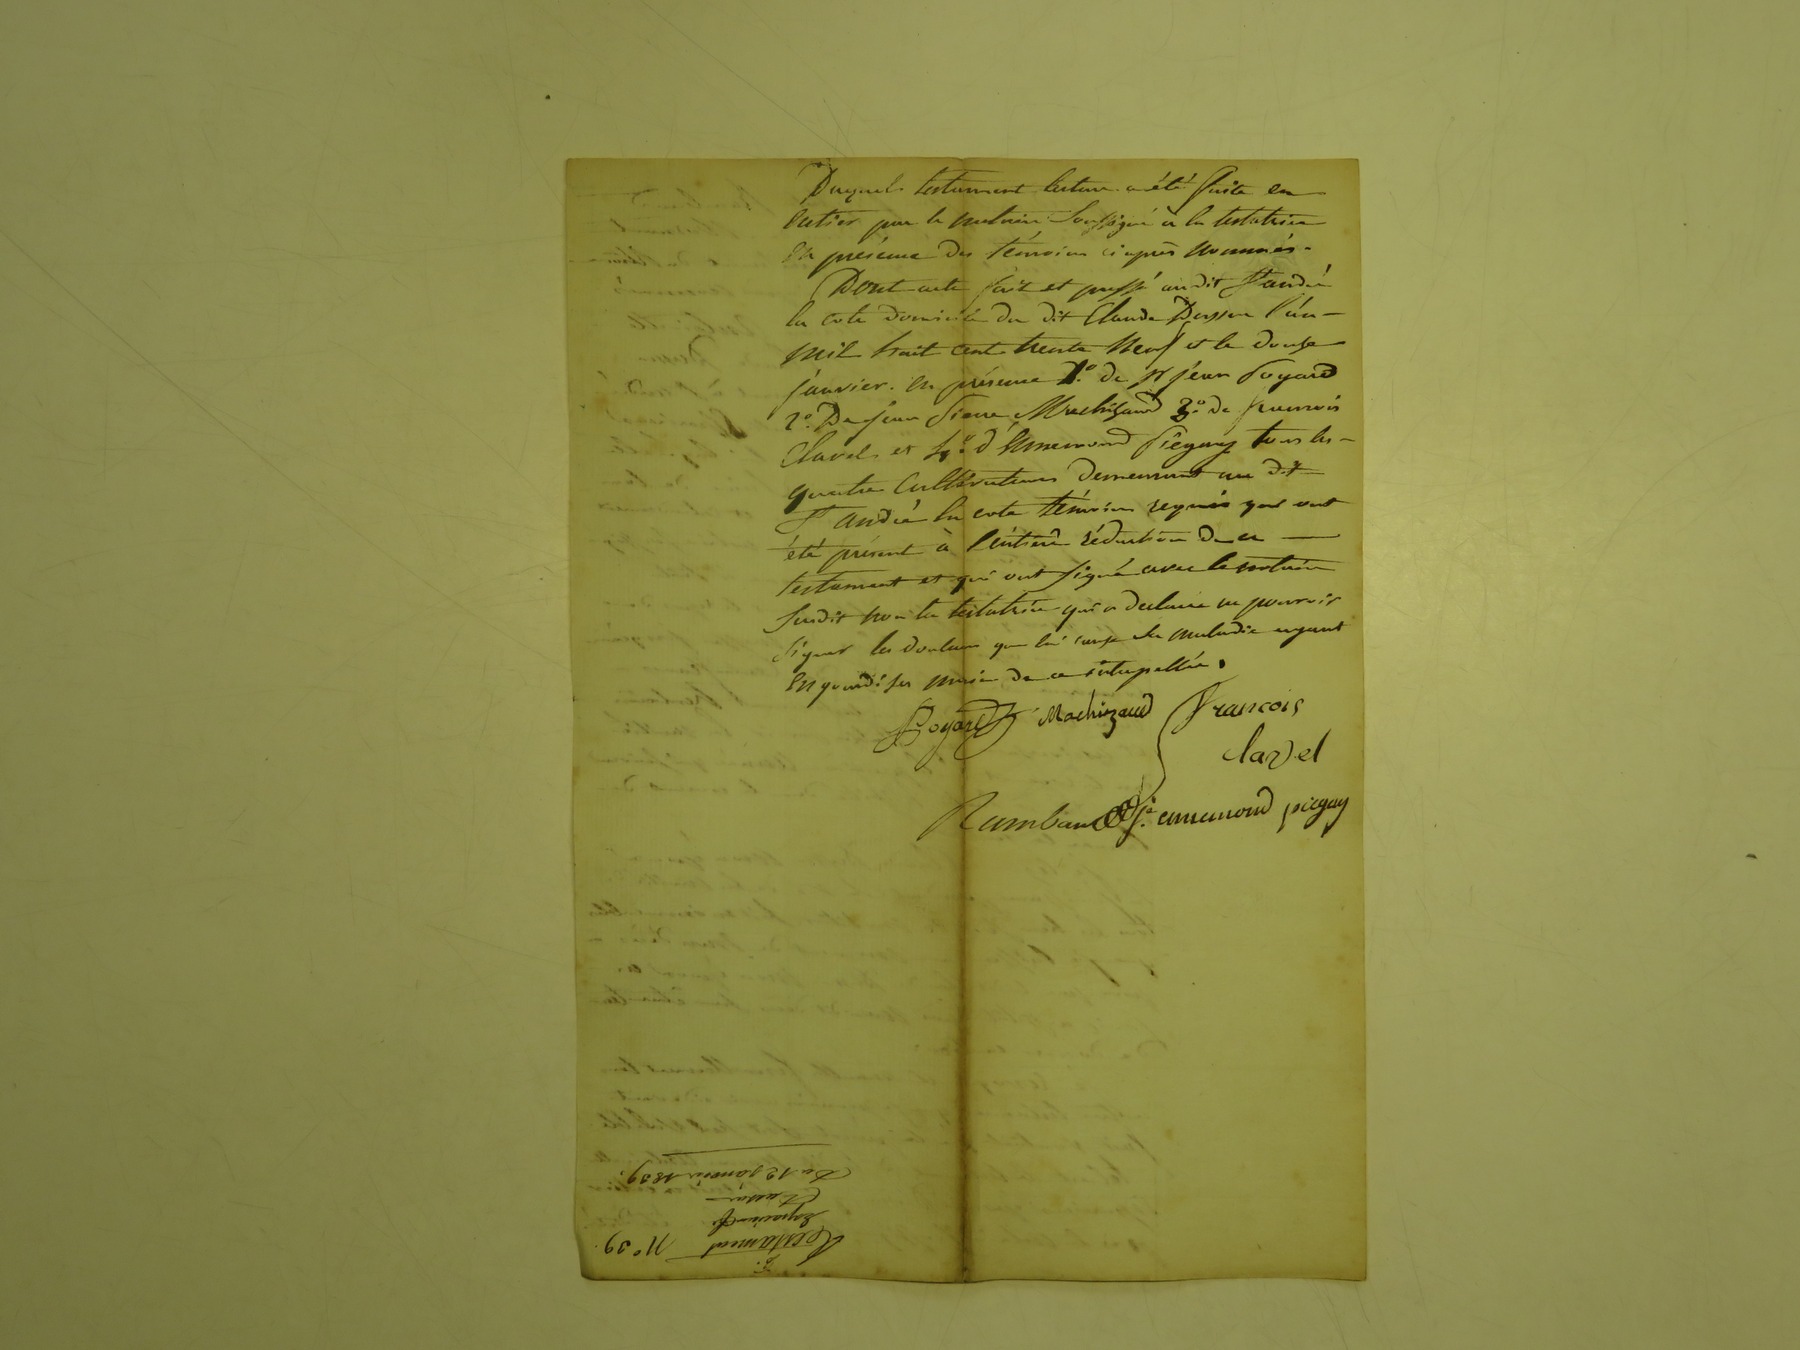 Duquel testament lecture a été faite en
entier par le notaire soussigné à la testatrice
en présence des témoins ciaprès nommés.
Dont acte fait et passé audit St andré
la cote domicile du dit Claude Dusson l'an
mil huit cent trente neuf et le douze
janvier. en présence 1.º de Sr jean Poyard
2º. De jean Pierre Machizaud 3º. de francois
Clavel et 4º. d'Annemond Piegay tous les
quatre Cultivateurs demeurant au dit
St andré la cote témoins requis qui ont
été présent à l'entière rédaction de ce
testament et qui ont signé avec le notaire
susdit non la testatrice qui a declaré ne pouvoir
signer les douleurs que lui cause sa maladie ayant
engourdi ses mains de ce interpellée.
Poyard Machizaud François
Clavel
Rambaud je annemond piegay
Testament Nº 39.
Du 12 janvier 1839.